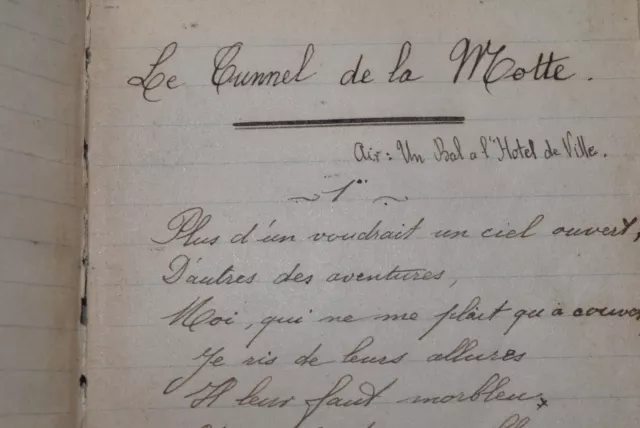 Le Tunnel de la Motte.
Air: Un Bal a l'Hotel de Ville.
1er
Plus d'un voudrait un ciel ouvert,
D'autres des aventures,
Moi, qui ne me plait qu'à
Je ris de leurs allures
Il leur faut morbleu